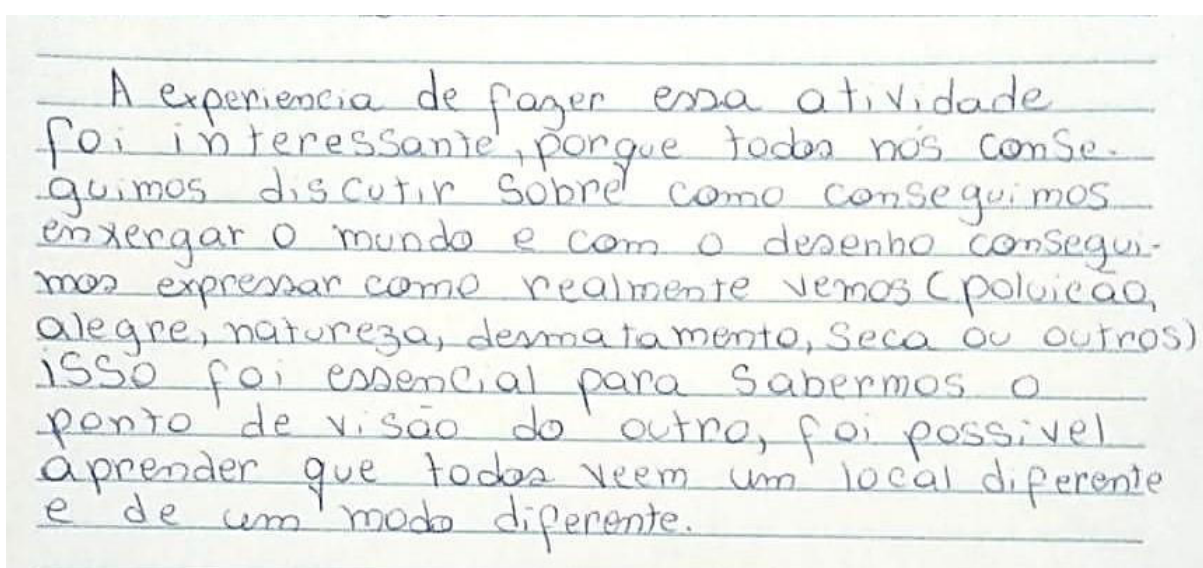 A experiencia de fazer essa atividade
foi interessante, porque todos nós conse-
guimos discutir sobre como conseguimos
enxergar o mundo e com o desenho consegui-
mos expressar como realmente vemos (poluicão,
alegre, natureza, desmatamento, seca ou outros)
isso foi essencial para sabermos o
ponto de visão do outro, foi possivel
aprender que todos veem um local diferente
e de um modo diferente.